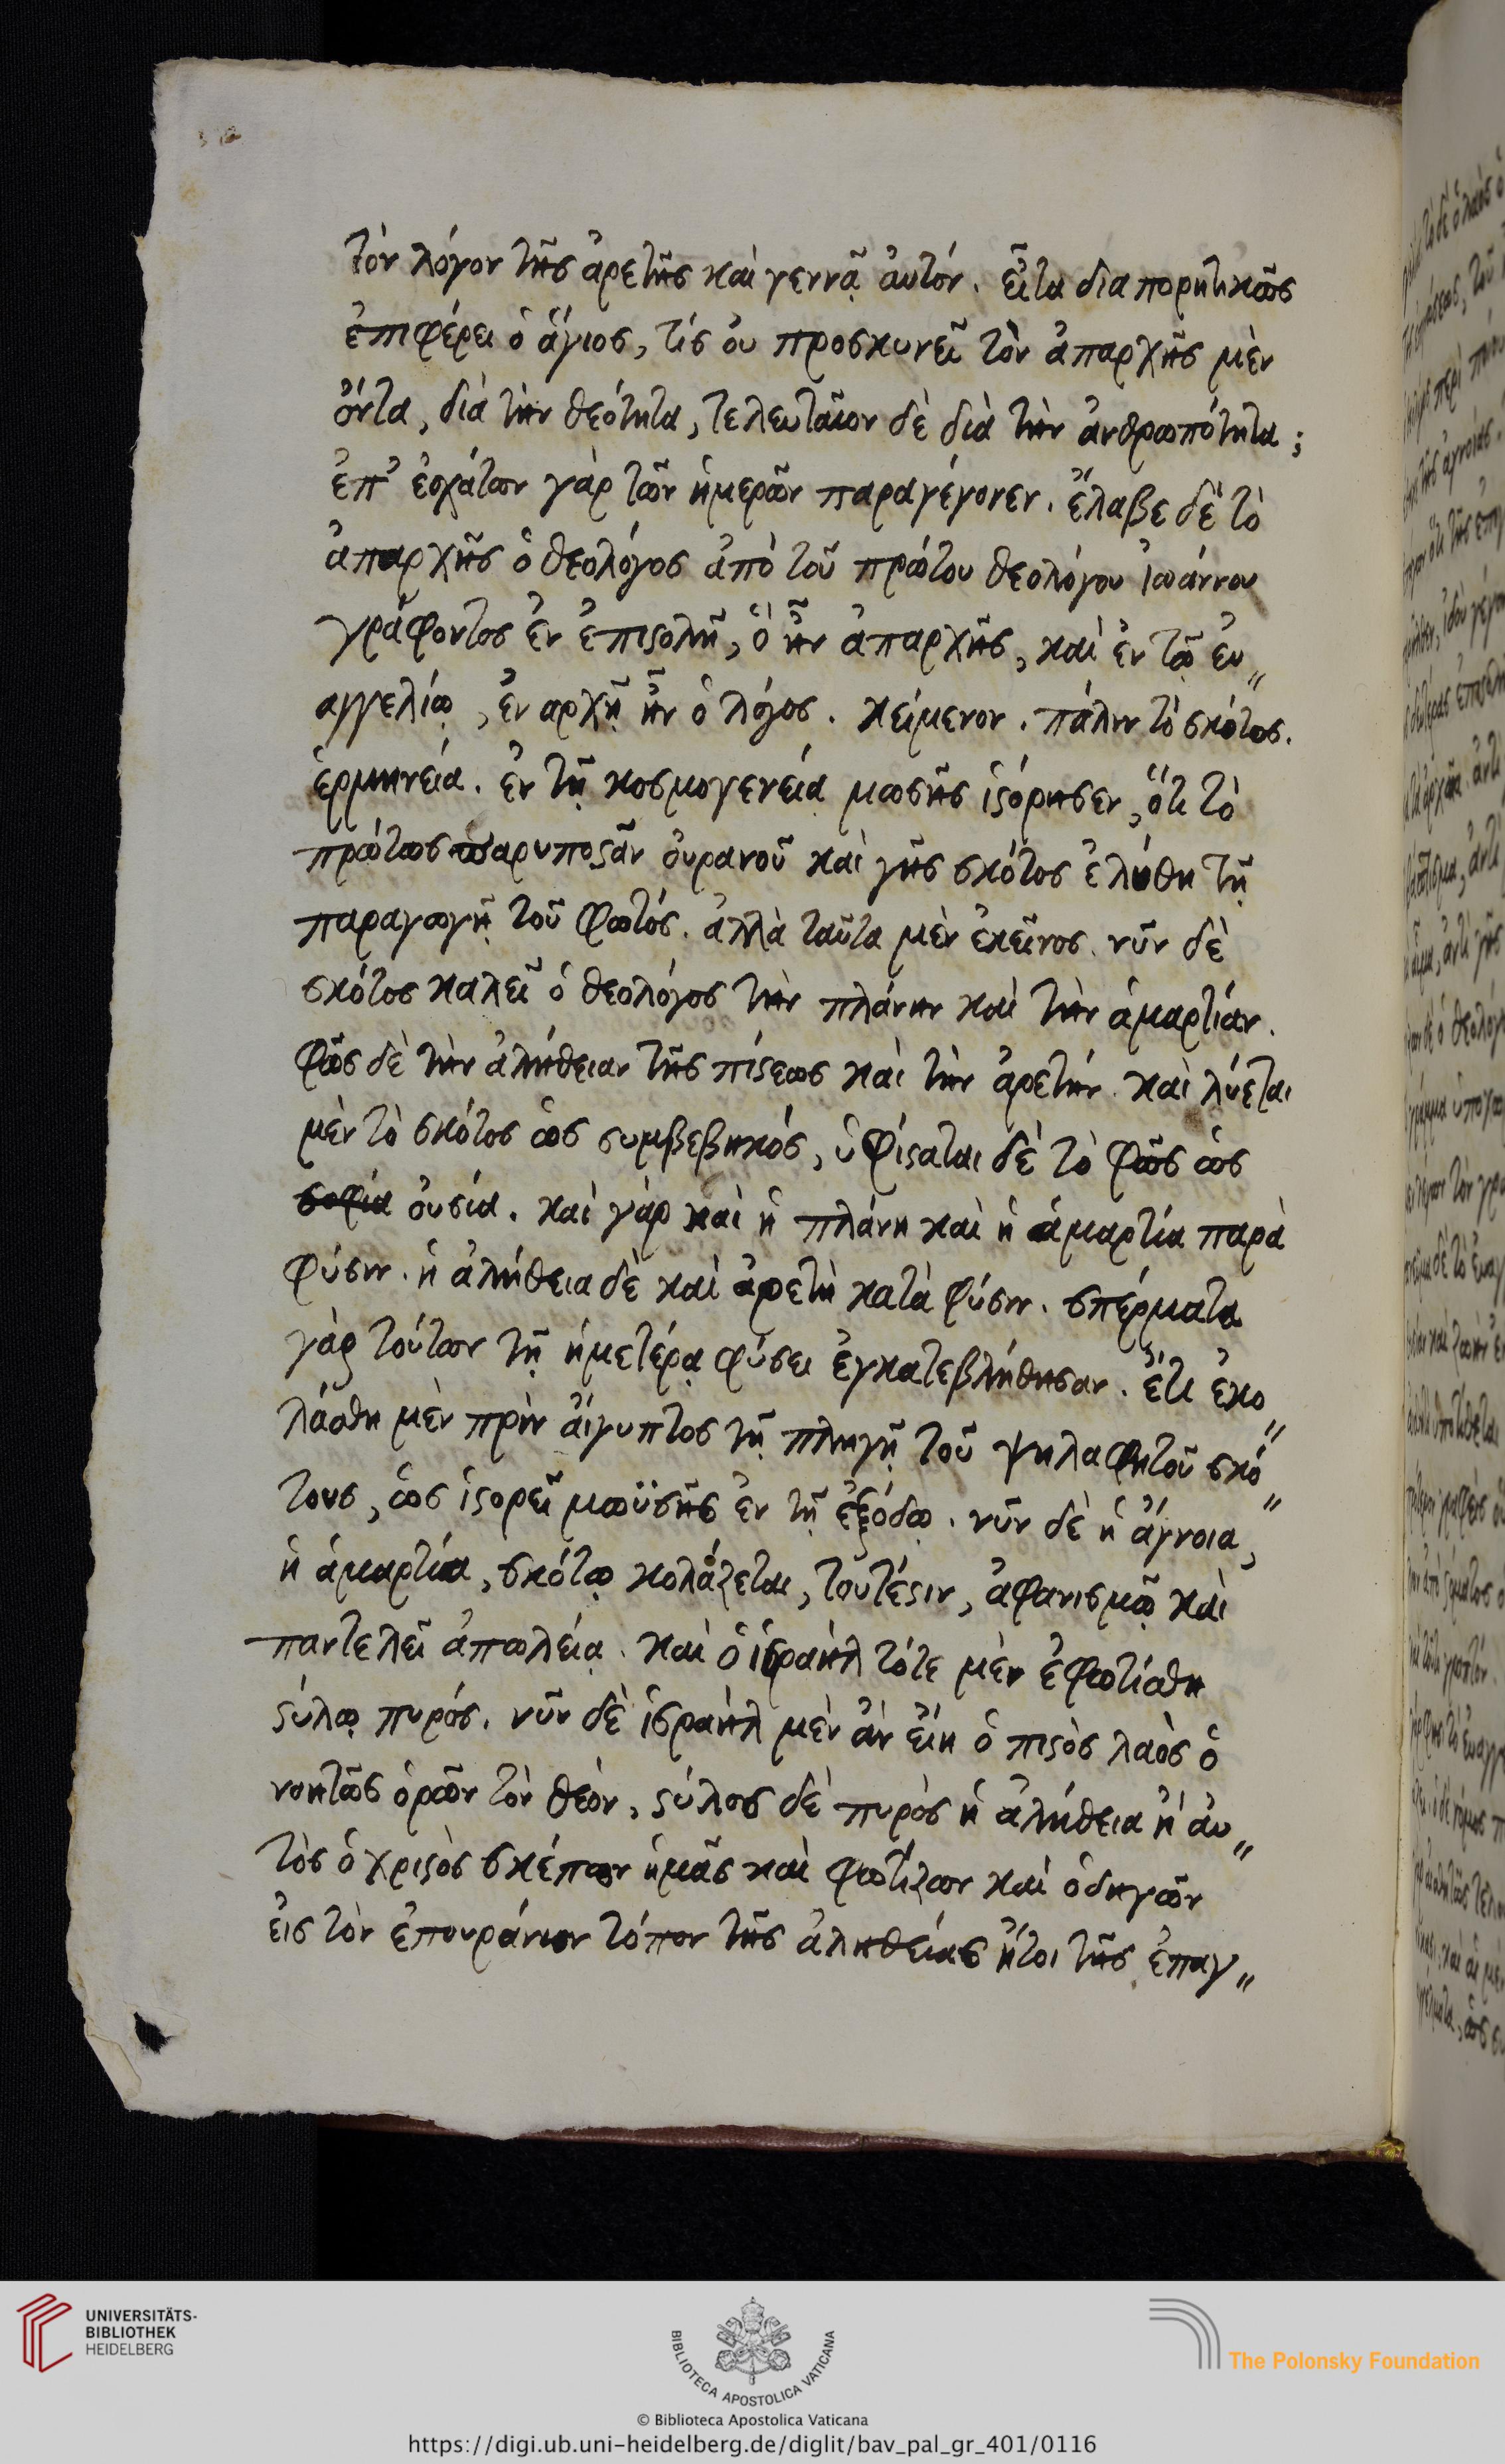 τὸν λόγον τῆς ἀρετῆς καὶ γεννᾷ ἀυτόν. εἶτα διαπορητικῶς
ἐπιφέρει ὁ ἅγιος, τίς ὀυ προσκυνεῖ τὸν ἀπαρχῆς μὲν
ὄντα, διὰ τὴν θεότητα, τελευταῖον δὲ διὰ τὴν ἀνθρωπότητα;
ἐπ' ἐσχάτων γὰρ τῶν ἡμερῶν παραγέγονεν. ἔλαβε δὲ τὸ
ἀπαρχῆς ὁ θεολόγος ἀπὸ τοῦ πρώτου θεολόγου ἰωάννου
γράφοντος ἐν ἐπιϛολῇ, ὃ ἦν ἀπαρχῆς, καὶ ἐν τῷ ἐυ„
αγγελίῳ, ἐν αρχῇ ἦν ὁ λόγος. κείμενον. πάλιν τὸ σκότος.
ἑρμηνεία. ἐν τῇ κοσμογενείᾳ μωσῆς ἱϛόρησεν, ὅτι τὸ
πρώτως παρυποϛὰν ὀυρανοῦ καὶ γῆς σκότος ἐλύθη τῇ
παραγωγῇ τοῦ φωτός. ἀλλὰ ταῦτα μὲν ἐκεῖνος. νῦν δὲ
σκότος καλεῖ ὁ θεολόγος τὴν πλάνην καὶ τὴν ἁμαρτίαν.
φῶς δὲ τὴν ἀλήθειαν τῆς πίϛεως καὶ τὴν ἀρετήν. καὶ λύεται
μὲν τὸ σκότος ὡς συμβεβηκός, ὑφίϛαται δὲ τὸ φῶς ὡς
σοφία ὀυσία. καὶ γὰρ καὶ ἡ πλάνη καὶ ἡ ἁμαρτία παρὰ
φύσιν. ἡ ἀλήθεια δὲ καὶ ἀρετὴ κατὰ φύσιν. σπέρματα
γὰρ τούτων τῇ ἡμετέρᾳ φύσει ἐγκατεβλήθησαν. ἔτι ἐκο„
λάσθη μὲν πρὶν ἄιγυπτος τῇ πληγῇ τοῦ ψηλαφητοῦ σκό„
τους, ὡς ἱϛορεῖ μωϋσῆς ἐν τῇ ἐξόδῳ. νῦν δὲ ἡ ἄγνοια,
ἡ ἁμαρτία, σκότῳ κολάζεται, τουτέϛιν, ἀφανισμῷ καὶ
παντελεῖ ἀπωλείᾳ. καὶ ὁ ἰσραὴλ τότε μὲν ἐφωτίσθη
ϛύλῳ πυρός. νῦν δὲ ἰσραὴλ μὲν ἂν ἔιη ὁ πιϛὸς λαὸς ὁ
νοητῶς ὁρῶν τὸν θεόν, ϛύλος δὲ πυρὸς ἡ ἀλήθεια ἢ ἀυ„
τὸς ὁ χριϛὸς σκέπων ἡμᾶς καὶ φωτίζων καὶ ὁδηγῶν
ἐις τὸν ἐπουράνιον τόπον τῆς ἀληθείας ἤτοι τῆς ἐπαγ„
UNIVERSITÄTS-
BIBLIOTHEK
HEIDELBERG
BIBLIOTECA APOSTOLICA VATICANA
The Polonsky Foundation
© Biblioteca Apostolica Vaticana
https://digi.ub.uni-heidelberg.de/diglit/bav_pal_gr_401/0116